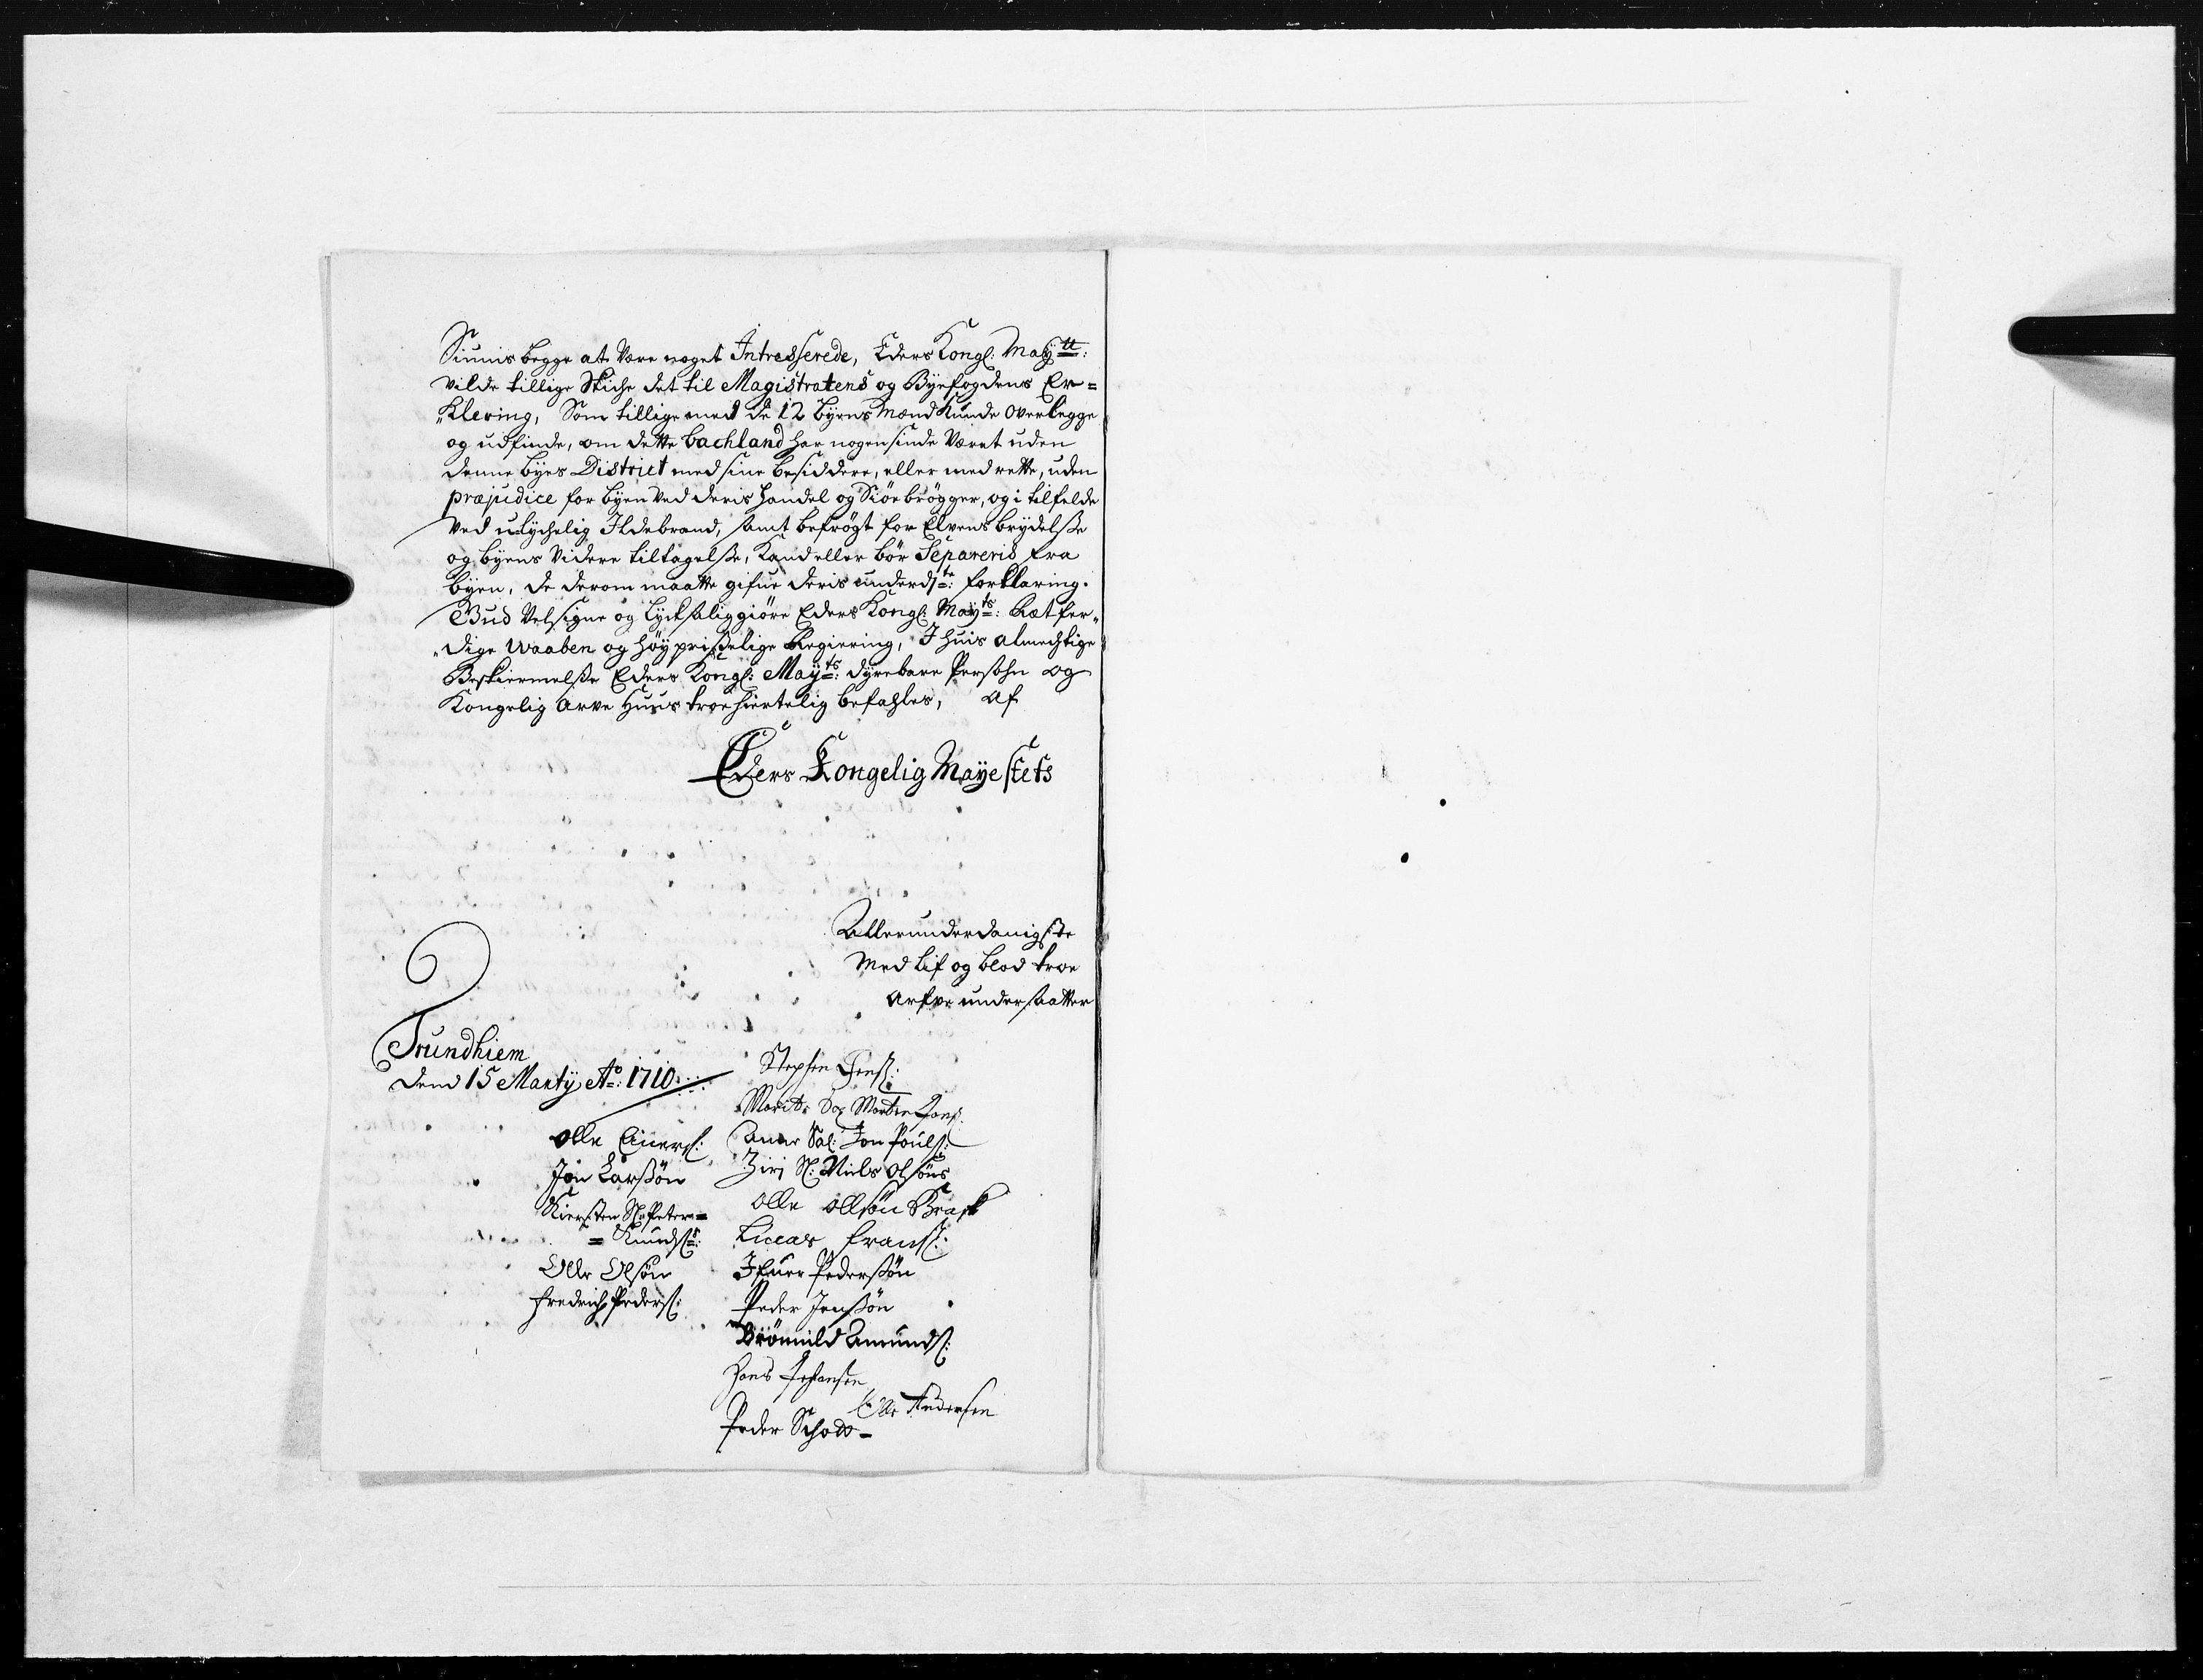 Siunis begge at være noget Intresserede, Eders Kongl: Mayᵗᵗ:
vilde tillige Skiche det til Magistratens og Byefogdens Er=
„Klering, Som tillige med de 12 byens Mænd kunde overlegge
og udfinde, om dette bachland har nogensinde været uden
denne byes District med sine besiddere, eller med rette, uden
præjudice for byen ved deris handel og Siöebrögger, og i tilfelde
ved ulychelig Ildebrand, samt befrögt for Elvens brydelsse
og byens videre tiltagelsse, kand eller bör Separeris fra
byen, de derom maatte gifue deris underdˢᵗᵉ: forklaring.
Gud Velsigne og lycksaliggiöre Eders Kongl: Mayᵗˢ: Rætfer„
„dige Waaben og höyprisselige Regiering, I huis almechtige
Beskiermelsse Eders Kongl: Mayᵗˢ: dyrebare Persohn og
Kongelig Arve Huus troehiertelig befahles, Af
Eders Kongelig Mayestets
Allerunderdanigste
Med lif og blod troe
Arfve undersaatter
Trundhiem
dend 15 Marty Aᵒ: 1710
Stephen Jenss:
Marite Sal Morten Jons:
Olle Einers:
Anne Sal: Jon Pouls:
Jon Larssön
Ziri Sl: Niels Olsöns
Kiersten Sl: Peter=
Olle Ollsön Brask
= Knudsˢ:
Lucas frans:
Olle Olsön
Ifuer Pederssön
fredrich Peders:
Peder Jenssön
Brönnild Amunds:
Hans Johansen
Olle Andersen
Peder Schow